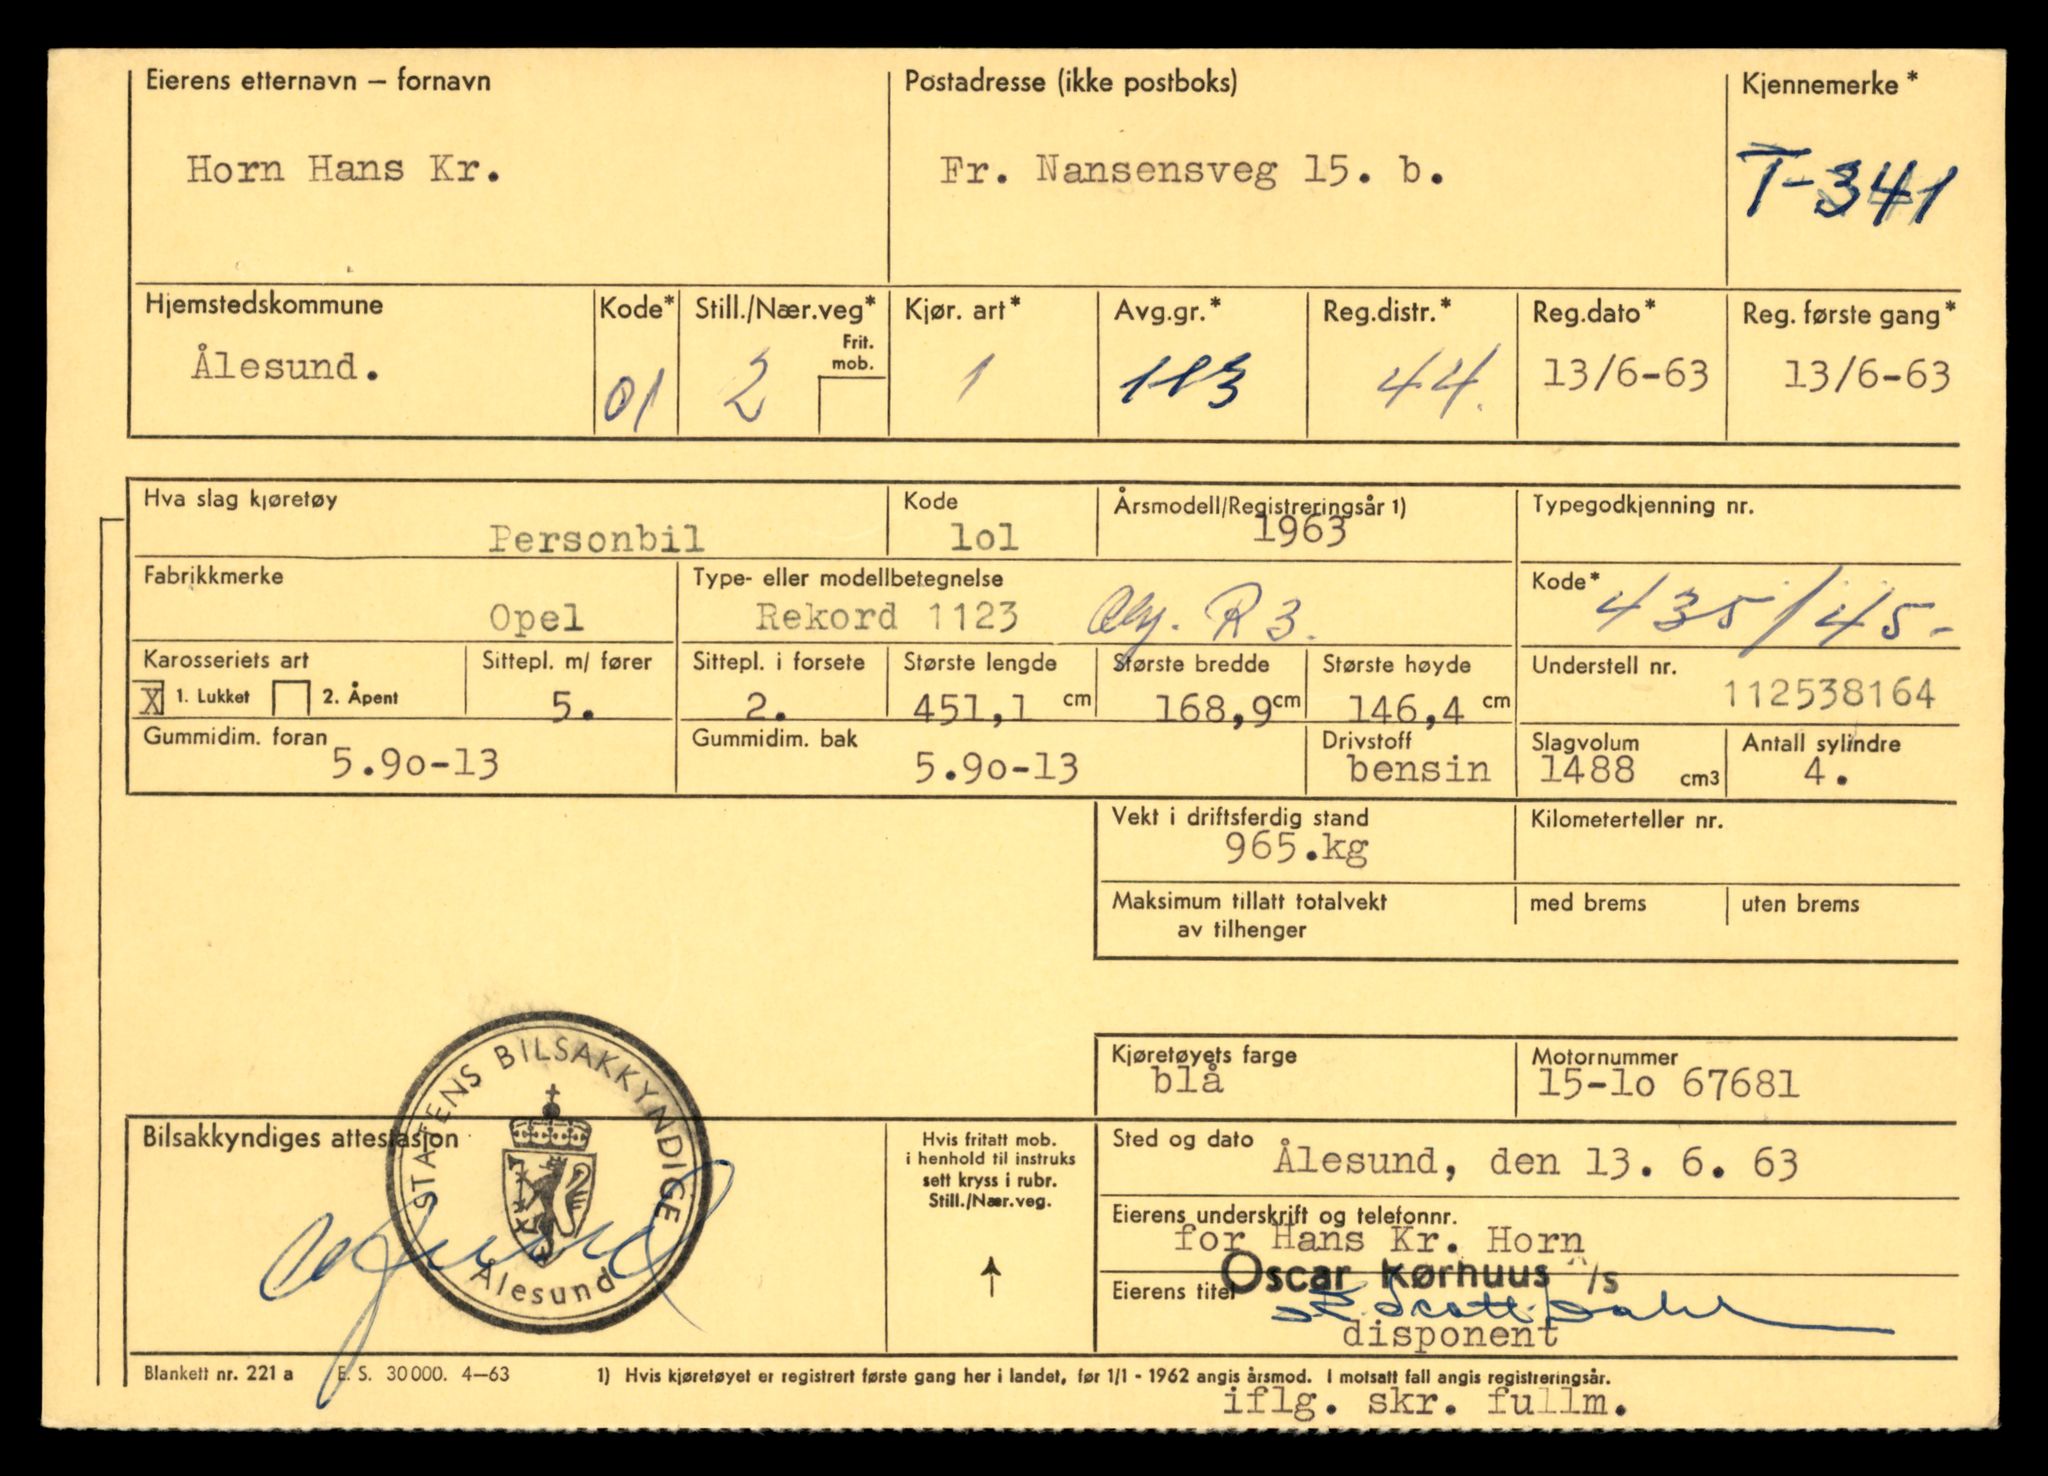 Eierens etternavn – fornavn Postadresse (ikke postboks) Kjennemerke*
Horn Hans Kr. Fr. Nansensveg 15. b. T-341
Hjemstedskommune Kode* Still./Nær.veg* Kjør. art* Avg.gr.* Reg.distr.* Reg.dato* Reg. første gang*
Frit. mob.
Ålesund. 01 2 1 113 44. 13/6-63 13/6-63
Hva slag kjøretøy Kode Årsmodell/Registreringsår 1) Typegodkjenning nr.
Personbil lol 1963
Fabrikkmerke Type- eller modellbetegnelse Kode*
Opel Rekord 1123 R 3. 435/45-
Karosseriets art Sittepl. m/ fører Sittepl. i forsete Største lengde Største bredde Største høyde Understell nr.
X 1. Lukket 2. Åpent 5. 2. 451,1 cm 168,9 cm 146,4 cm 112538164
Gummidim. foran Gummidim. bak Drivstoff Slagvolum Antall sylindre
5.9o-13 5.9o-13 bensin 1488 cm3 4.
Vekt i driftsferdig stand Kilometerteller nr.
965.kg
Maksimum tillatt totalvekt med brems uten brems
av tilhenger
Kjøretøyets farge Motornummer
blå 15-lo 67681
STATENS BILSAKKYNDIGE
Ålesund
Bilsakkyndiges attestasjon
Hvis fritatt mob.
i henhold til instruks
sett kryss i rubr.
Still./Nær.veg.
Sted og dato
Ålesund, den 13. 6. 63
Eierens underskrift og telefonnr.
for Hans Kr. Horn
Oscar Kørhuus A/S
Eierens titel
disponent
Blankett nr. 221 a E. S. 30000. 4–63 1) Hvis kjøretøyet er registrert første gang her i landet, før 1/1 - 1962 angis årsmod. I motsatt fall angis registreringsår.
iflg. skr. fullm.